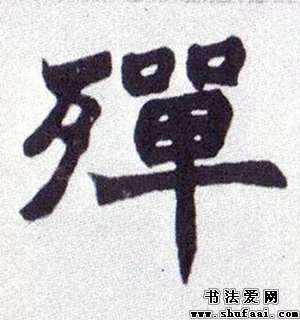 殫
书法爱网
www.shufaai.com